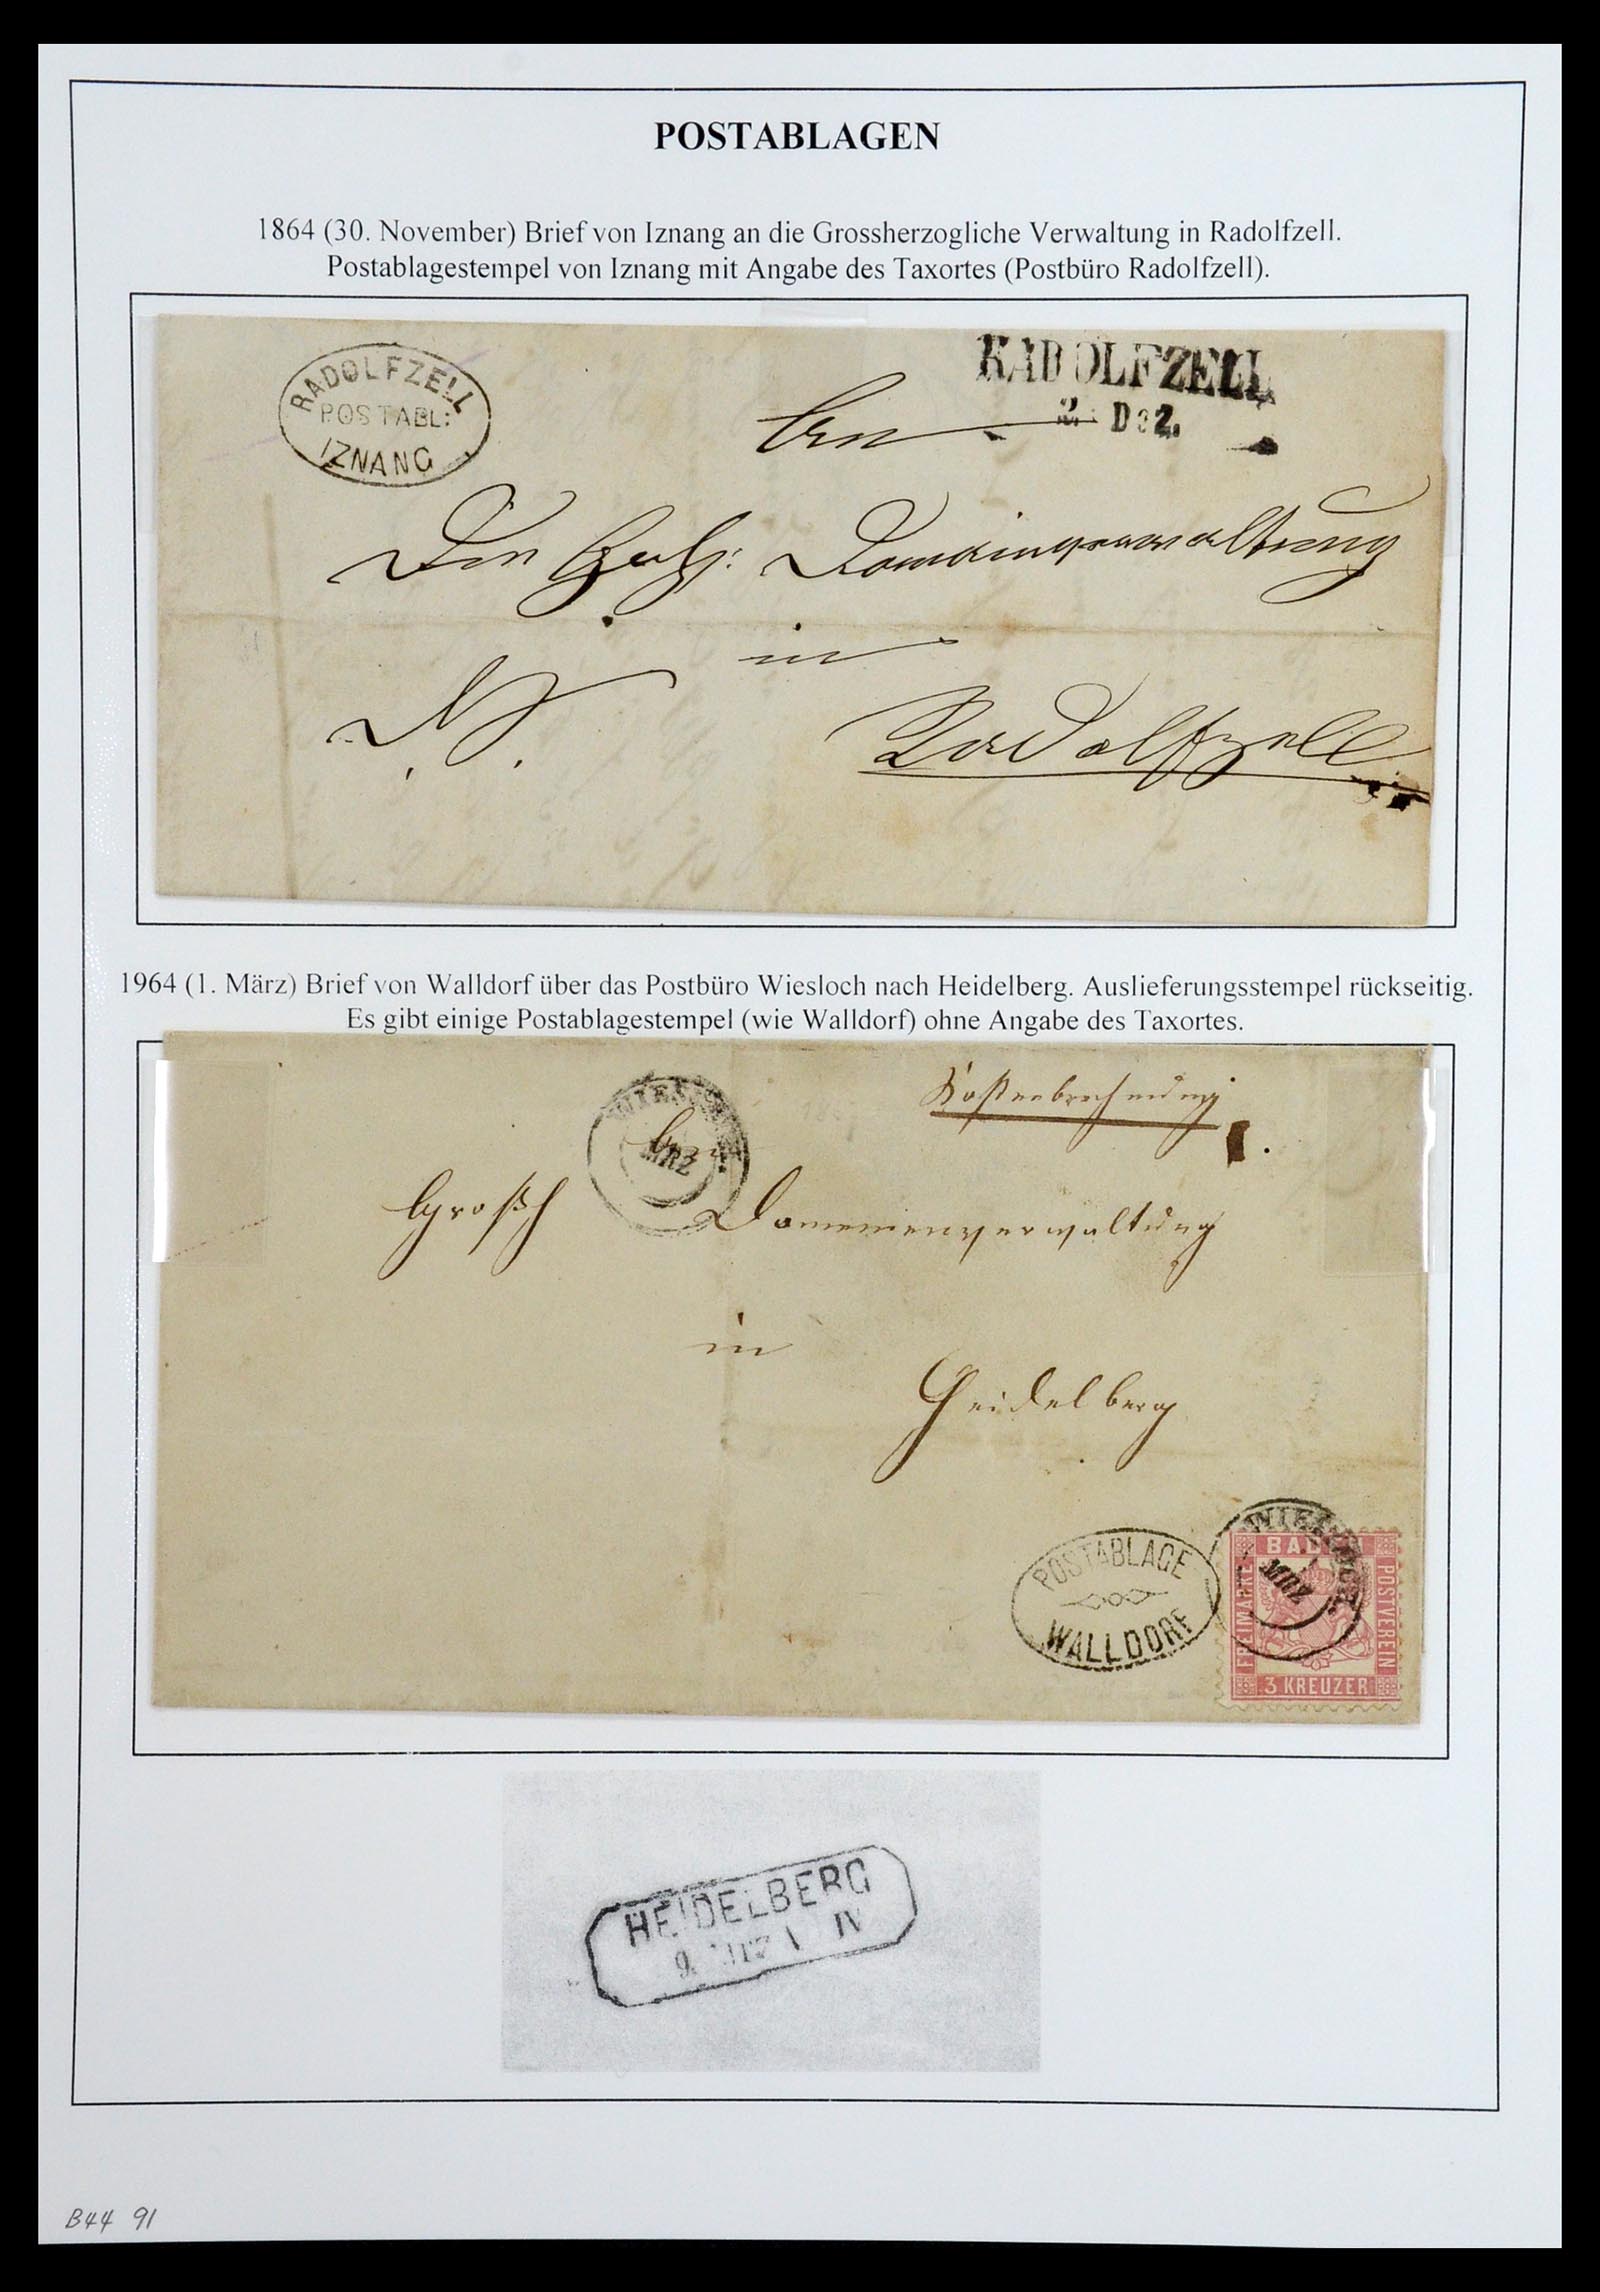 POSTABLAGEN
1864 (30. November) Brief von Iznang an die Grossherzogliche Verwaltung in Radolfzell.
Postablagestempel von Iznang mit Angabe des Taxortes (Postbüro Radolfzell).
RADOLFZELL
POSTABL:
IZNANG
RADOLFZELL
2. Dez.
An
Domainenverwaltung
in
Radolfzell
1964 (1. März) Brief von Walldorf über das Postbüro Wiesloch nach Heidelberg. Auslieferungsstempel rückseitig.
Es gibt einige Postablagestempel (wie Walldorf) ohne Angabe des Taxortes.
MRZ
Kostenberechnung
Großh Domenenverwaltung
in
Heidelberg
POSTABLAGE
WALLDORF
MRZ
BADEN
FREIMARKE
POSTVEREIN
3 KREUZER
HEIDELBERG
IV
B44 91